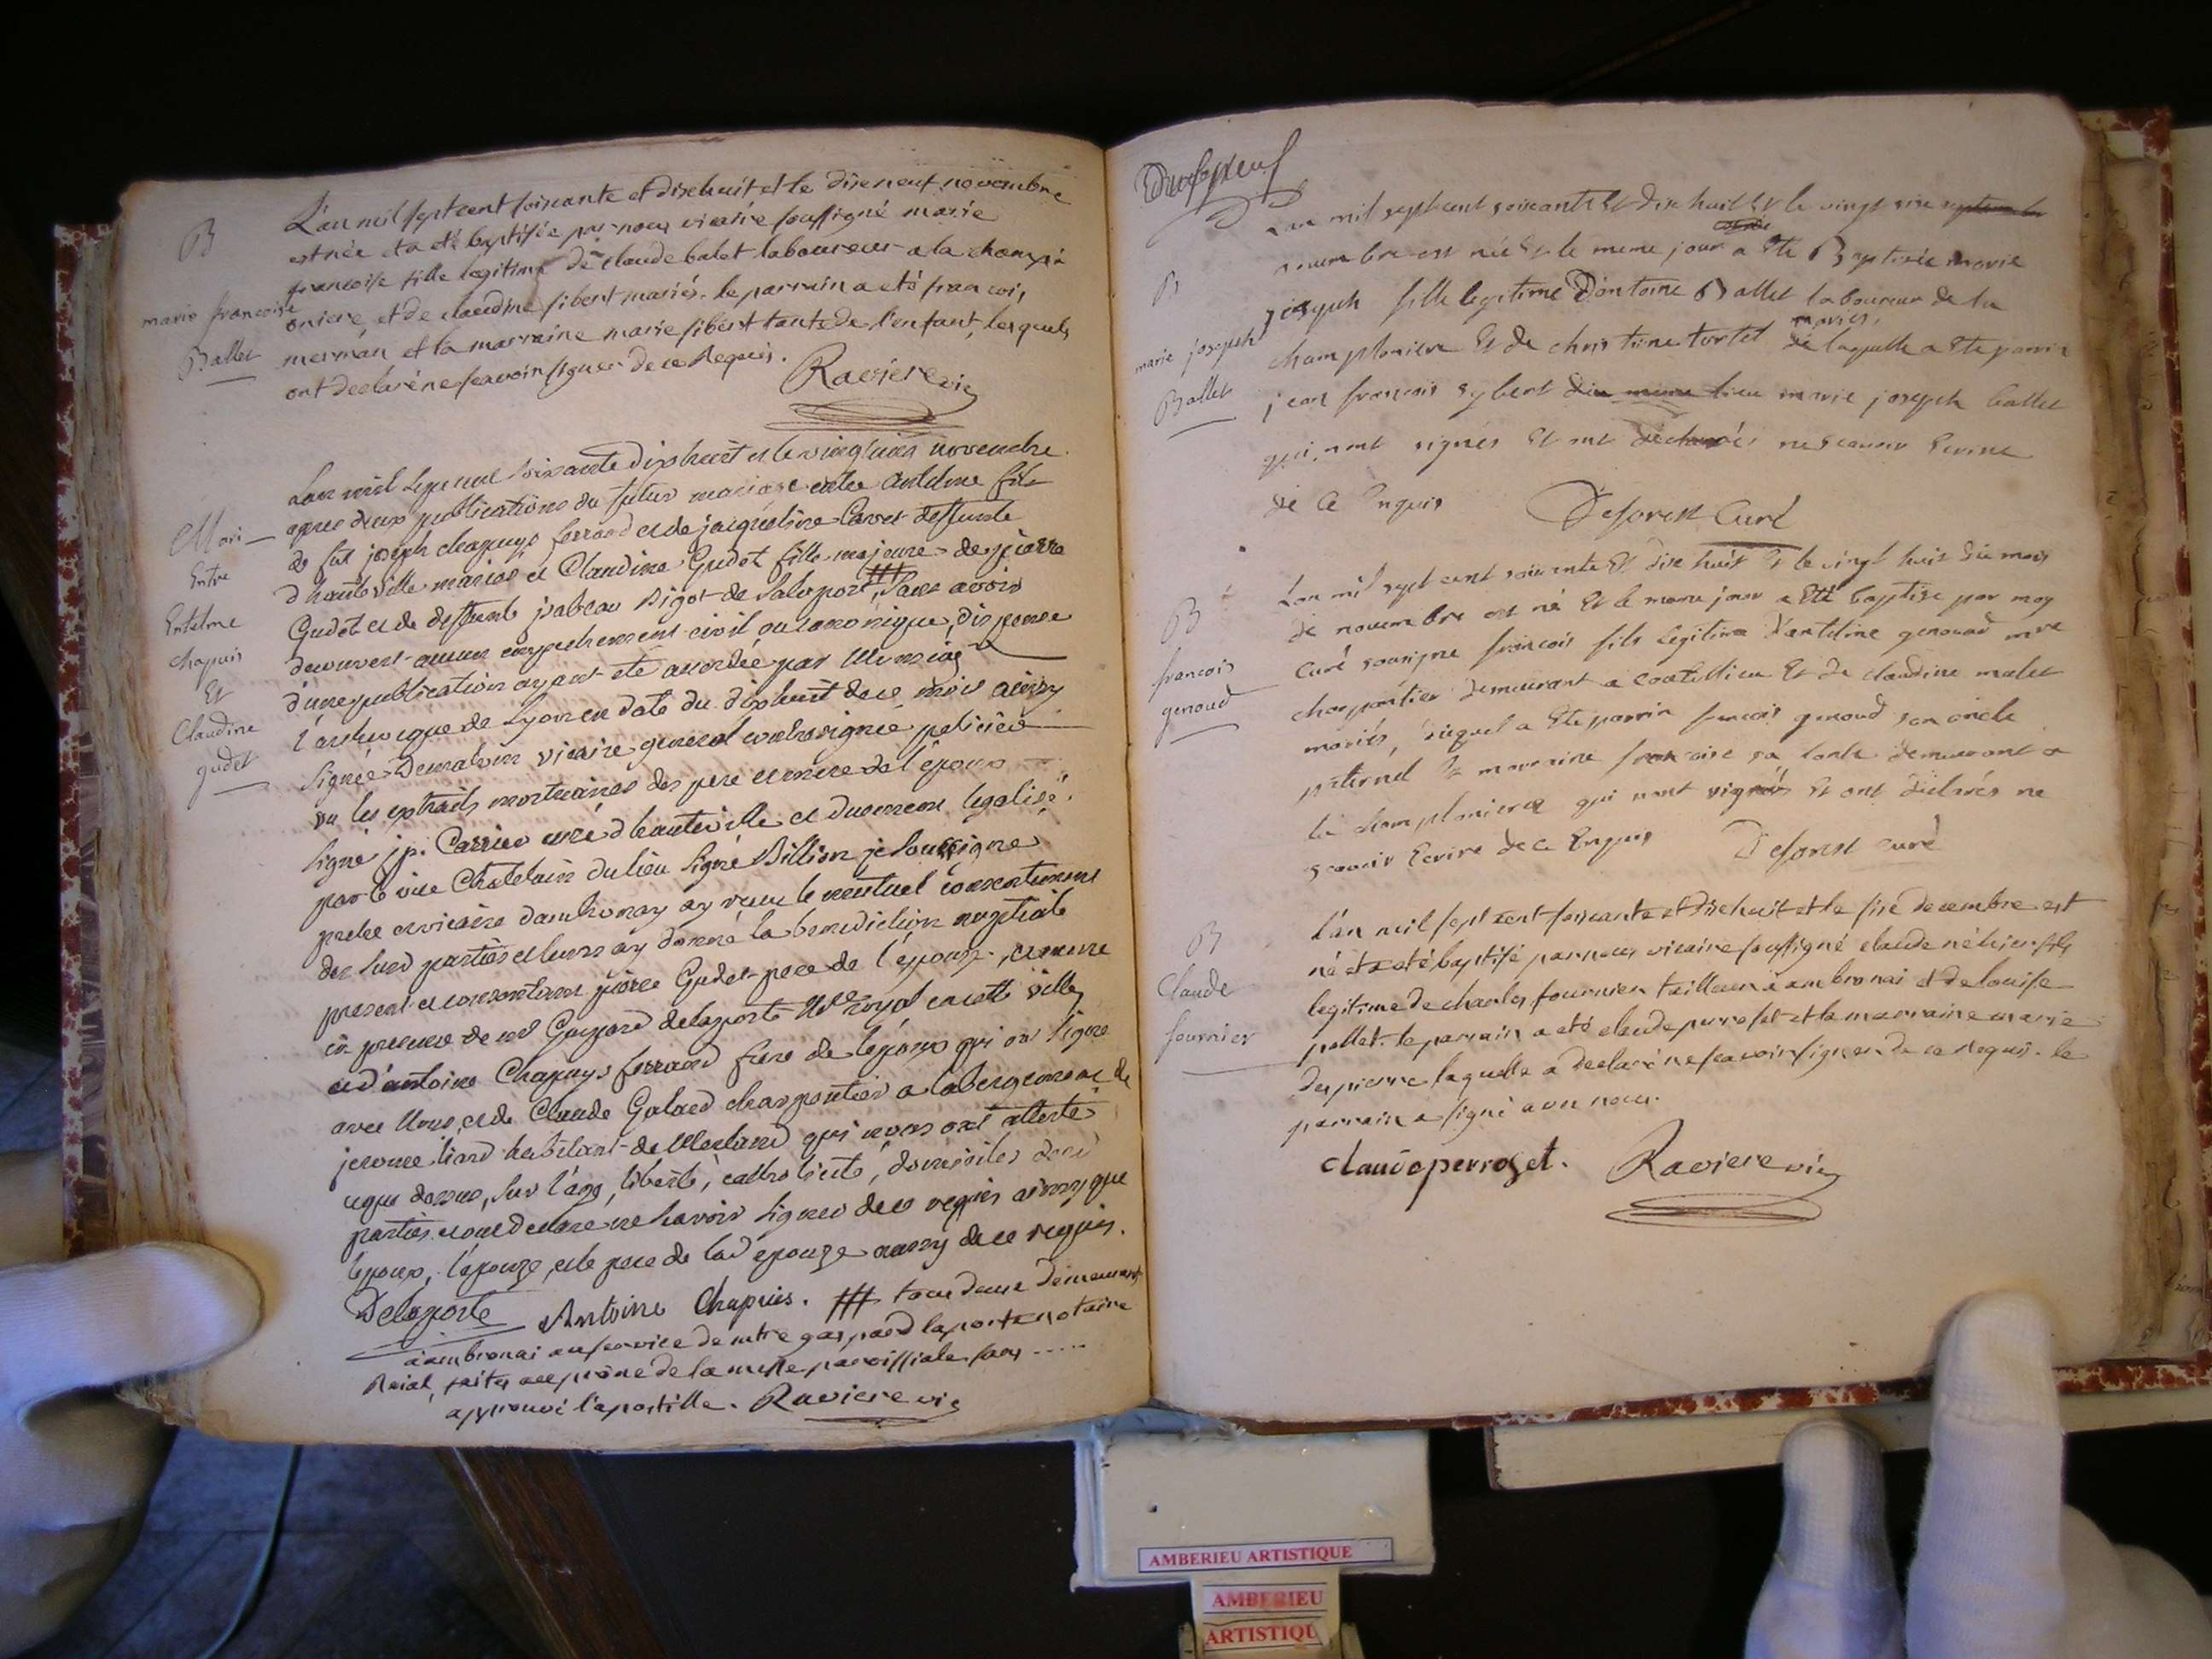 B
marie francoise
Ballet
L'an mil sept cent soixante et dixehuit et le dixeneuf novembre
est née et a eté baptisée par nous vicaire soussigné marie
francoise fille legitime de claude balet laboureur a la champ
oniere, et de claudine sibert mariés. le parrain a eté francois
merman et la marraine marie sibert tante de l'enfant, lesquels
ont declaré ne scavoir signer de ce Requis.
Raviere vic
Mari
Entre
Entelme
chapuis
Et
Claudine
gudet
Lan mil sept cent soixante dixhuit et le vingt novembre
apres deux publications du futur mariage entre antelme fils
de fut joseph chapuys ferrand et de jacqueline Carrer deffunte
d'hauteville mariés et Claudine Gudet fille majeure de pierre
Gudet et de deffunte isabeau Bigot de Saleport, ⵌ Sans avoir
decouvert aucun empechement civil ou canonique, dispense
d'une publication ayant eté accordée par Monseig
l'archevêque de Lyon en date du dixhuit de ce mois ainsy
signée Demalvin vicaire general contresignée
vu les extraits mortuaires des pere et mere de l'époux
signé j p. Carrier curé d'hauteville et duement legalisé
par le vice Chatelain du lieu signé Billion je soussigné
pretre et vicaire d'ambronay ay reçu le mutuel consentement
des susd parties et leurs ay donné la benediction nuptiale
present et consentant pierre Gudet pere de l'épouse, et encore
en presence de md Gaspard delaporte Nre royal en cette ville
et d'antoine Chapuys ferrand frere de l'époux qui ont signé
avec Nous, et de Claude Galand charpentier a labergement de
jerome liand habitant de Merland qui nous ont attesté
que dessus, sur l'age, liberté, catholicité, domiciles desd
parties et ont declaré ne savoir signer de ce requis ainsy que
l'époux, l'épouze et le pere de lad epouze aussy de ce requis.
Delaporte Antoine Chapuis. ⵌ tous deux demeurant
a ambronai au service de mtre gaspard laporte notaire
Roial, faites au prône de la messe paroissiale sans .....
approuvé l'apostille. Raviere vic
B
marie joseph
Ballet
Lan mil sept cent soixante Et dix huit Et le vingt six
novembre est née Et le meme jour a Ete Baptisée marie
joseph fille legitime D'antoine Ballet laboureur de la
mariés,
champloniere Et de christine tortel de laquelle a Ete parrin
jean francois sybert du meme lieu marie joseph ballet
qui n'ont signés Et ont déclarés ne scavoir Ecrire
de ce Enquis Deforest Curé
B
francois
genoud
Lan mil sept cent soixante Et dix huit Et le vingt huit du mois
de novembre est né Et le meme jour a Eté baptise par moy
curé sousigne francois fils legitime D'antelme genoud mtre
charpentier demeurant a coutelieu Et de claudine malet
mariés, duquel a Ete parrin francois genoud son oncle
paternel la marenine francoise sa tante demeurant a
la champloniere qui n'ont signés Et ont declarés ne
scavoir Ecrire de ce Enquis Deforest curé
B
Claude
fournier
L'an mil sept cent soixante et dixehuit et le six decembre est
né et a eté baptisé par nous vicaire soussigné claude né hier fils
legitime de charles fournier tailleur a ambronai et de louise
pollet. le parrain a eté claude perroset et la marraine marie
depierre laquelle a declaré ne scavoir signer de ce requis. le
parrain a signé avec nous.
claude perroset. Raviere vic
AMBERIEU ARTISTIQUE
AMBERIEU
ARTISTIQU